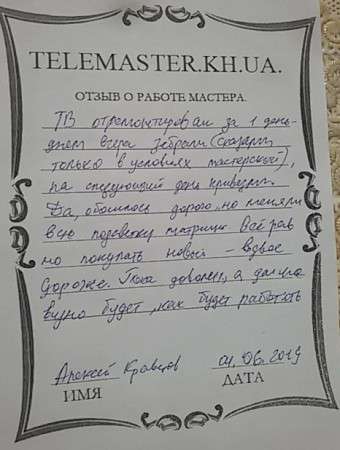 TELEMASTER.KH.UA.
ОТЗЫВ О РАБОТЕ МАСТЕРА.
ТВ отремонтировали за 1 день-
днем вчера забрали (сказали
только в условиях мастерской),
на следующий день привезли.
Да, обошлось дорого, но меняли
всю подсветку матрицы. Всё рав
но покупать новый – вдвое
дороже. Пока доволен, а дальше
видно будет, как будет работать
Алексей Кравцов 04.06.2019
ИМЯ ДАТА